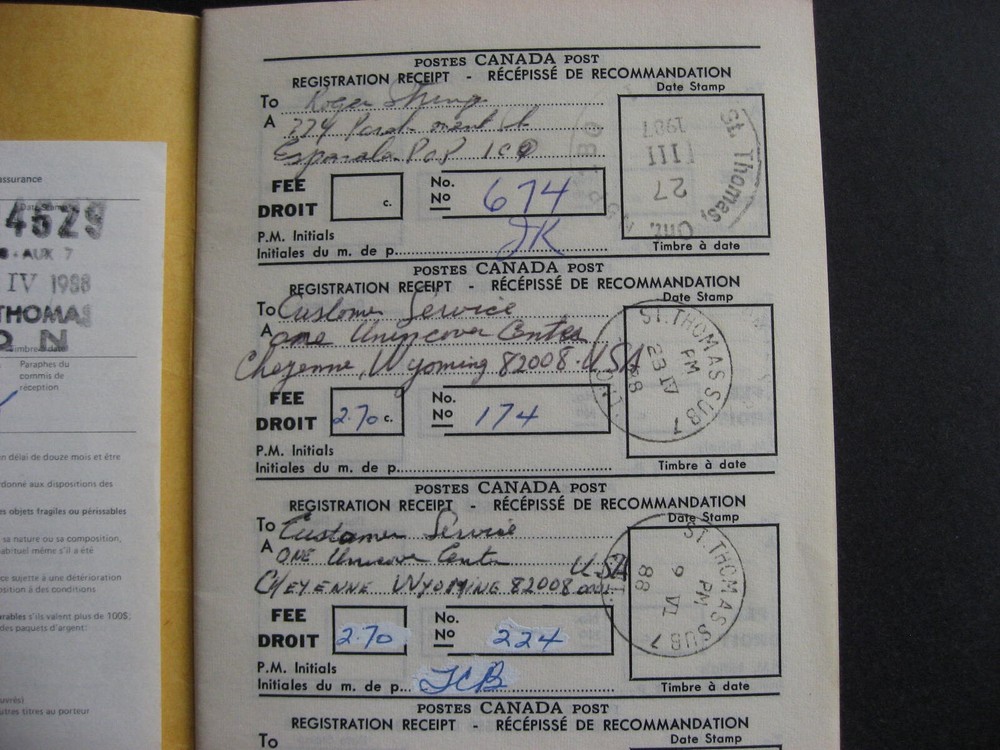 assurance
4529
AUX 7
IV 1988
THOMAS
O N
timbre
Paraphes du
commis de
réception
n délai de douze mois et être
rdonné aux dispositions des
es objets fragiles ou périssables
sa nature ou sa composition,
abituel même s'il a été
ce sujette à une détérioration
osition à des conditions
rables s'ils valent plus de 100$;
des paquets d'argent;
uvrés)
utres titres au porteur
POSTES CANADA POST
REGISTRATION RECEIPT - RÉCÉPISSÉ DE RECOMMANDATION
Date Stamp
To Roger
A 774
St. Thomas, Ont.
27 III 1987
FEE
DROIT
c.
No.
No 674
P.M. Initials JK
Initiales du m. de p.
Timbre à date
POSTES CANADA POST
REGISTRATION RECEIPT - RÉCÉPISSÉ DE RECOMMANDATION
Date Stamp
To Customer Service
A one Unicover Center
Cheyenne, Wyoming 82008 USA
ST. THOMAS SUB 7
PM
23 IV
88
FEE
DROIT 2.70 c.
No.
No 174
P.M. Initials
Initiales du m. de p.
Timbre à date
POSTES CANADA POST
REGISTRATION RECEIPT - RÉCÉPISSÉ DE RECOMMANDATION
Date Stamp
To Customer Service
A ONE Unicover Center
CHEYENNE WYOMING 82008 USA
ST. THOMAS SUB 7
PM
9 VI
88
FEE
DROIT 2.70
No.
No 224
P.M. Initials
Initiales du m. de p. JCB
Timbre à date
POSTES CANADA POST
REGISTRATION RECEIPT - RÉCÉPISSÉ DE RECOMMANDATION
Date Stamp
To